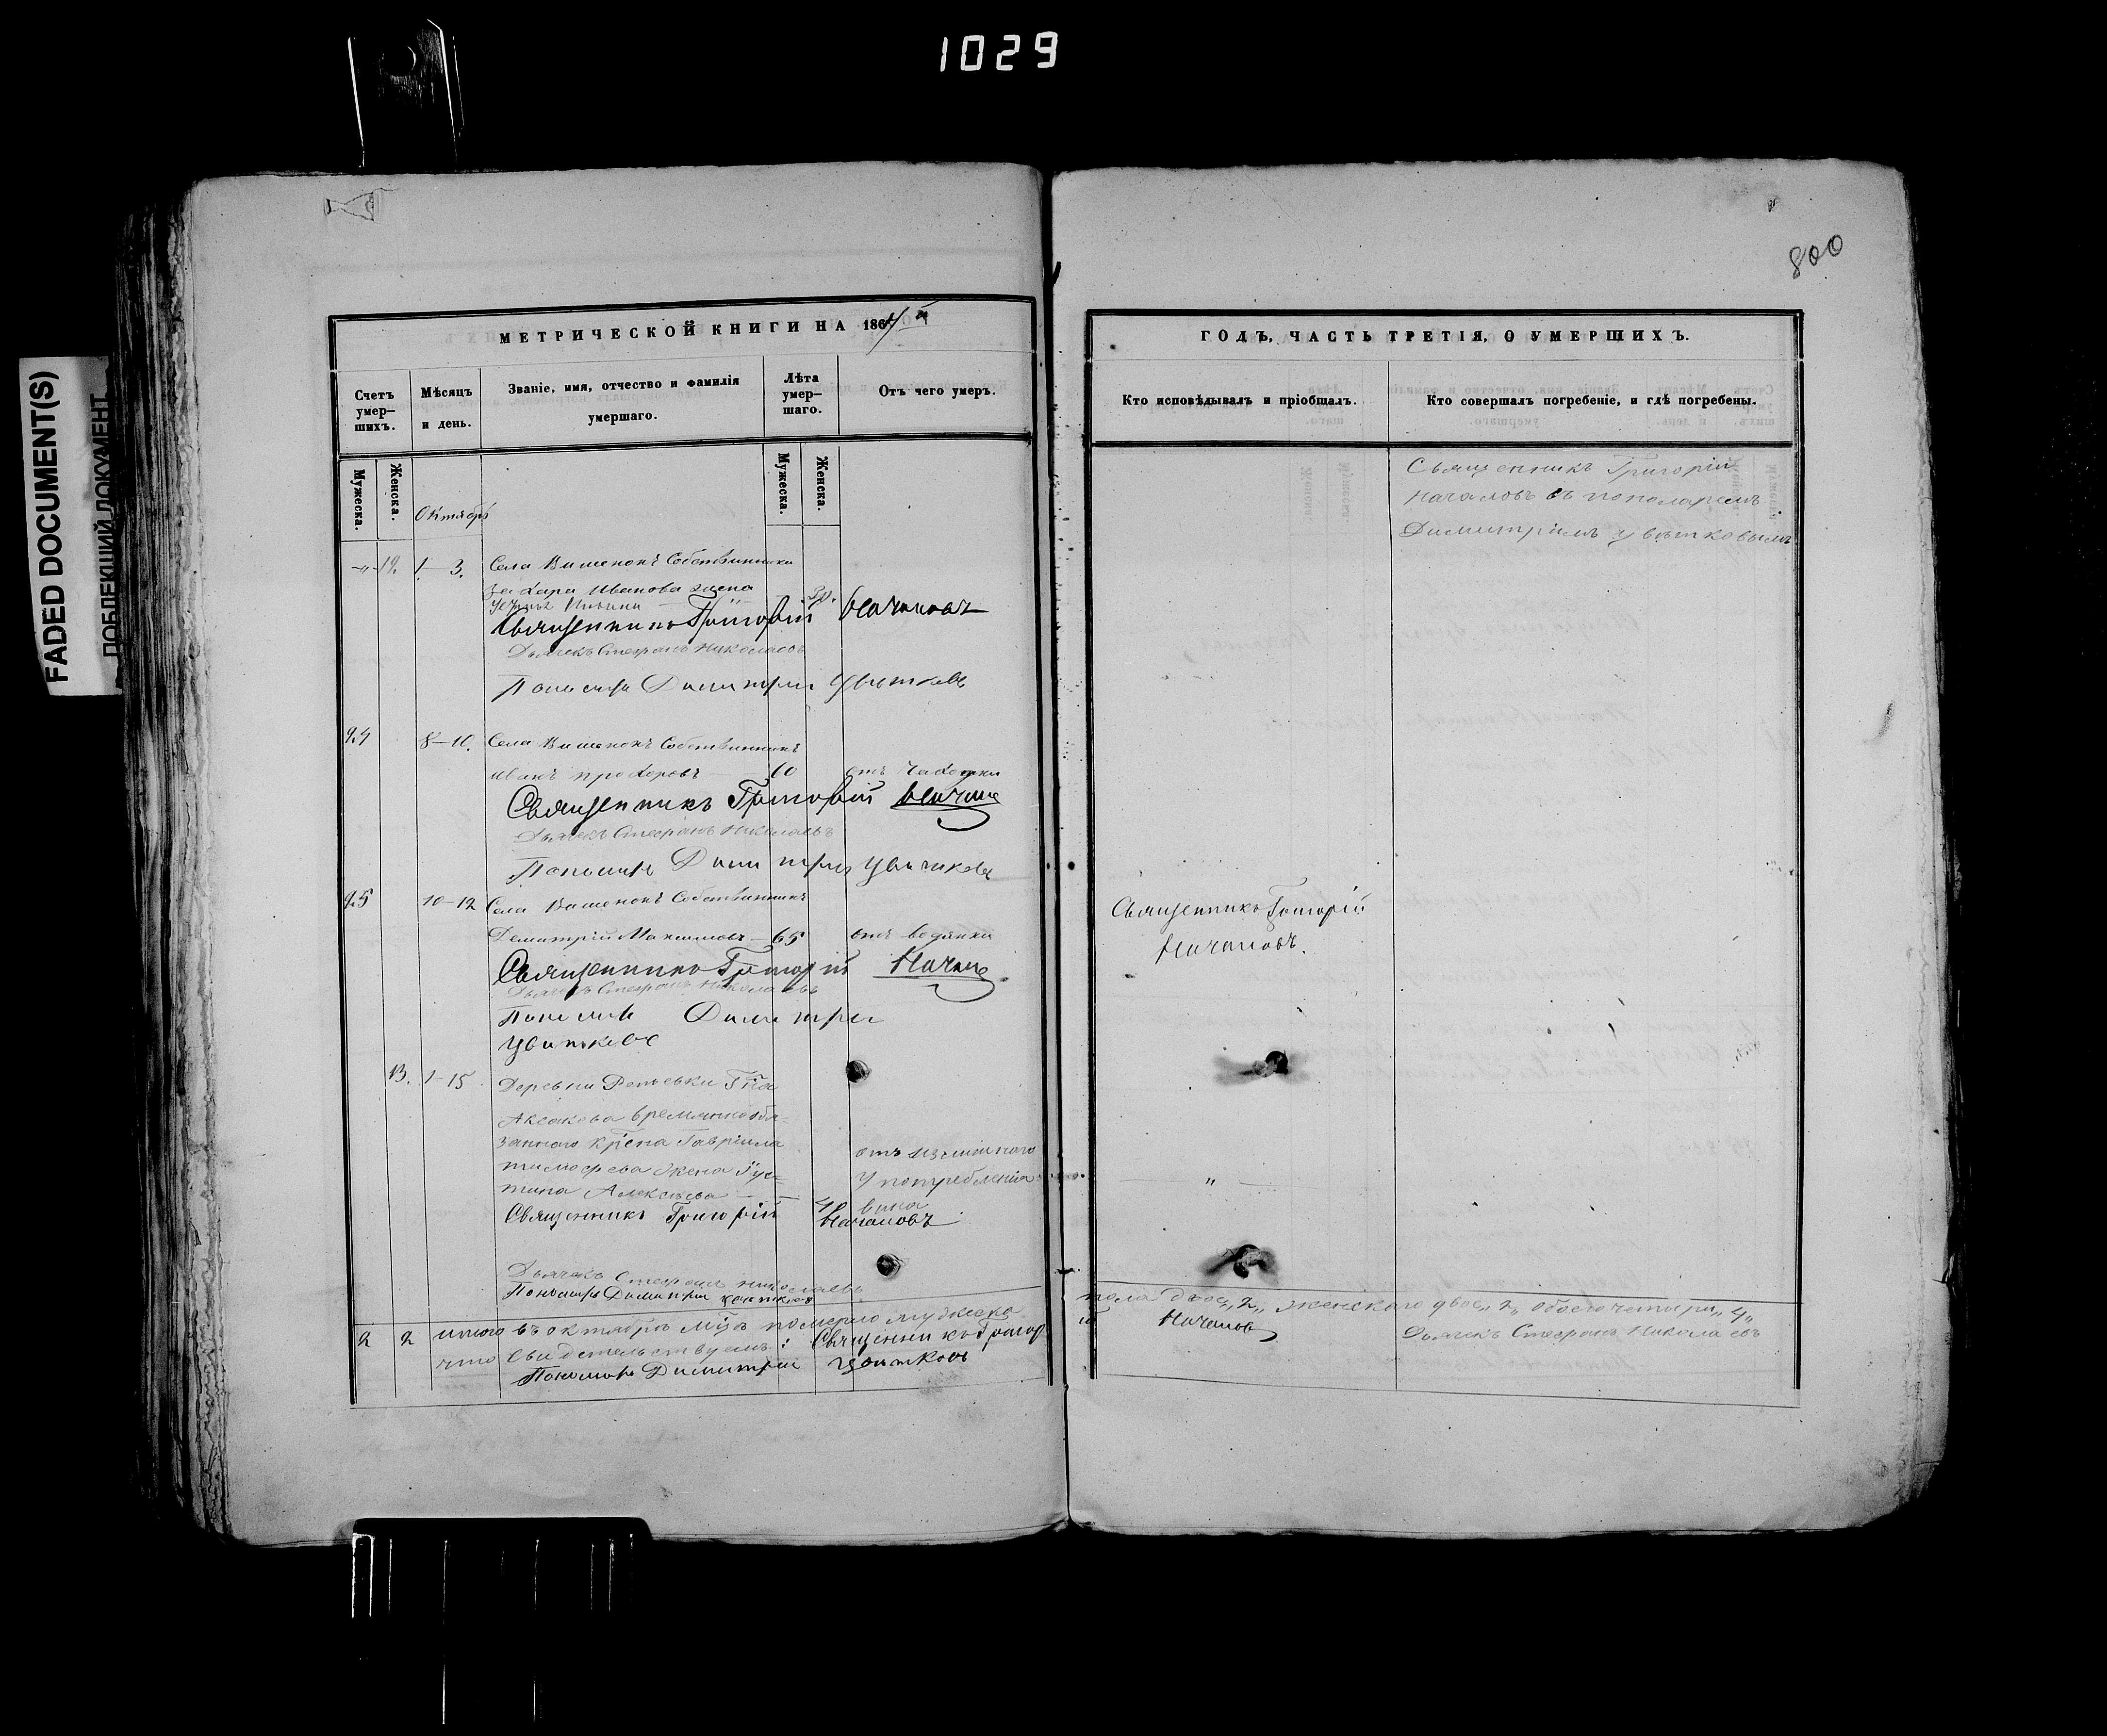 1029
FADED DOCUMENT(S)
ПОБЛЕКШИЙ ДОКУМЕНТ
800
МЕТРИЧЕСКОЙ КНИГИ НА 1864й
Счетъ умер-шихъ.
Мѣсяцъ и день.
Званіе, имя, отчество и фамилія умершаго.
Лѣта умер-шаго.
Отъ чего умеръ.
Мужеска.
Женска.
Октябрь
Мужеска.
Женска.
12. 1 3. Села Вишенокъ Собственника
Захара Иванова жена
Ильина 30.
Священникъ Григорій Началовъ
Дьячекъ Стефанъ Николаевъ
Пономарь Димитрій Цвѣтковъ
24 8-10. Села Вишенокъ Собственникъ
Иванъ Прохоровъ 60 отъ чахотки
Священникъ Григорій
Дьячекъ Стефанъ Николаевъ
Пономарь Димитрій Цвѣтковъ
25 10-12 Села Вишенокъ Собственникъ
Димитрій Максимовъ 65 отъ водянки
Священникъ Григорій
Дьячекъ Стефанъ Николаевъ
Пономарь Димитрій
Цвѣтковъ
13. 1-15 Деревни Репьевки Гна
Аксакова временнообя-
заннаго крѣна Гавріила
Тимофеева жена Іус-
тина Алексѣева 40
отъ излишняго
употребленія
вина
Священникъ Григорій Началовъ
Дьячекъ Стефанъ Николаевъ
Пономарь Димитрій Цвѣтковъ
2 2 итого въ октябрѣ мцѣ померло мужеска
что свидетельствуемъ: Священникъ Григор
Пономарь Димитрій Цвѣтковъ
ГОДЪ, ЧАСТЬ ТРЕТІЯ, О УМЕРШИХЪ.
Кто исповѣдывалъ и пріобщалъ.
Кто совершалъ погребеніе, и гдѣ погребены.
Священникъ Григорій
Началовъ съ пономаремъ
Димитріемъ Цвѣтковымъ
Священникъ Григорій
Началовъ.
"
пола двое „2„ женскаго двое „2„ обоего четыри „4„
ій Началовъ
Дьячекъ Стефанъ Николаевъ